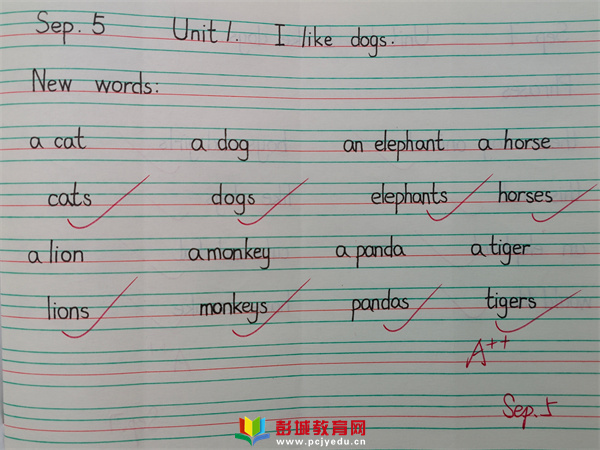 Sep. 5 Unit 1. I like dogs.
New words:
a cat a dog an elephant a horse
cats dogs elephants horses
a lion a monkey a panda a tiger
lions monkeys pandas tigers
A++
Sep. 5
彭城教育网
www.pcjyedu.cn